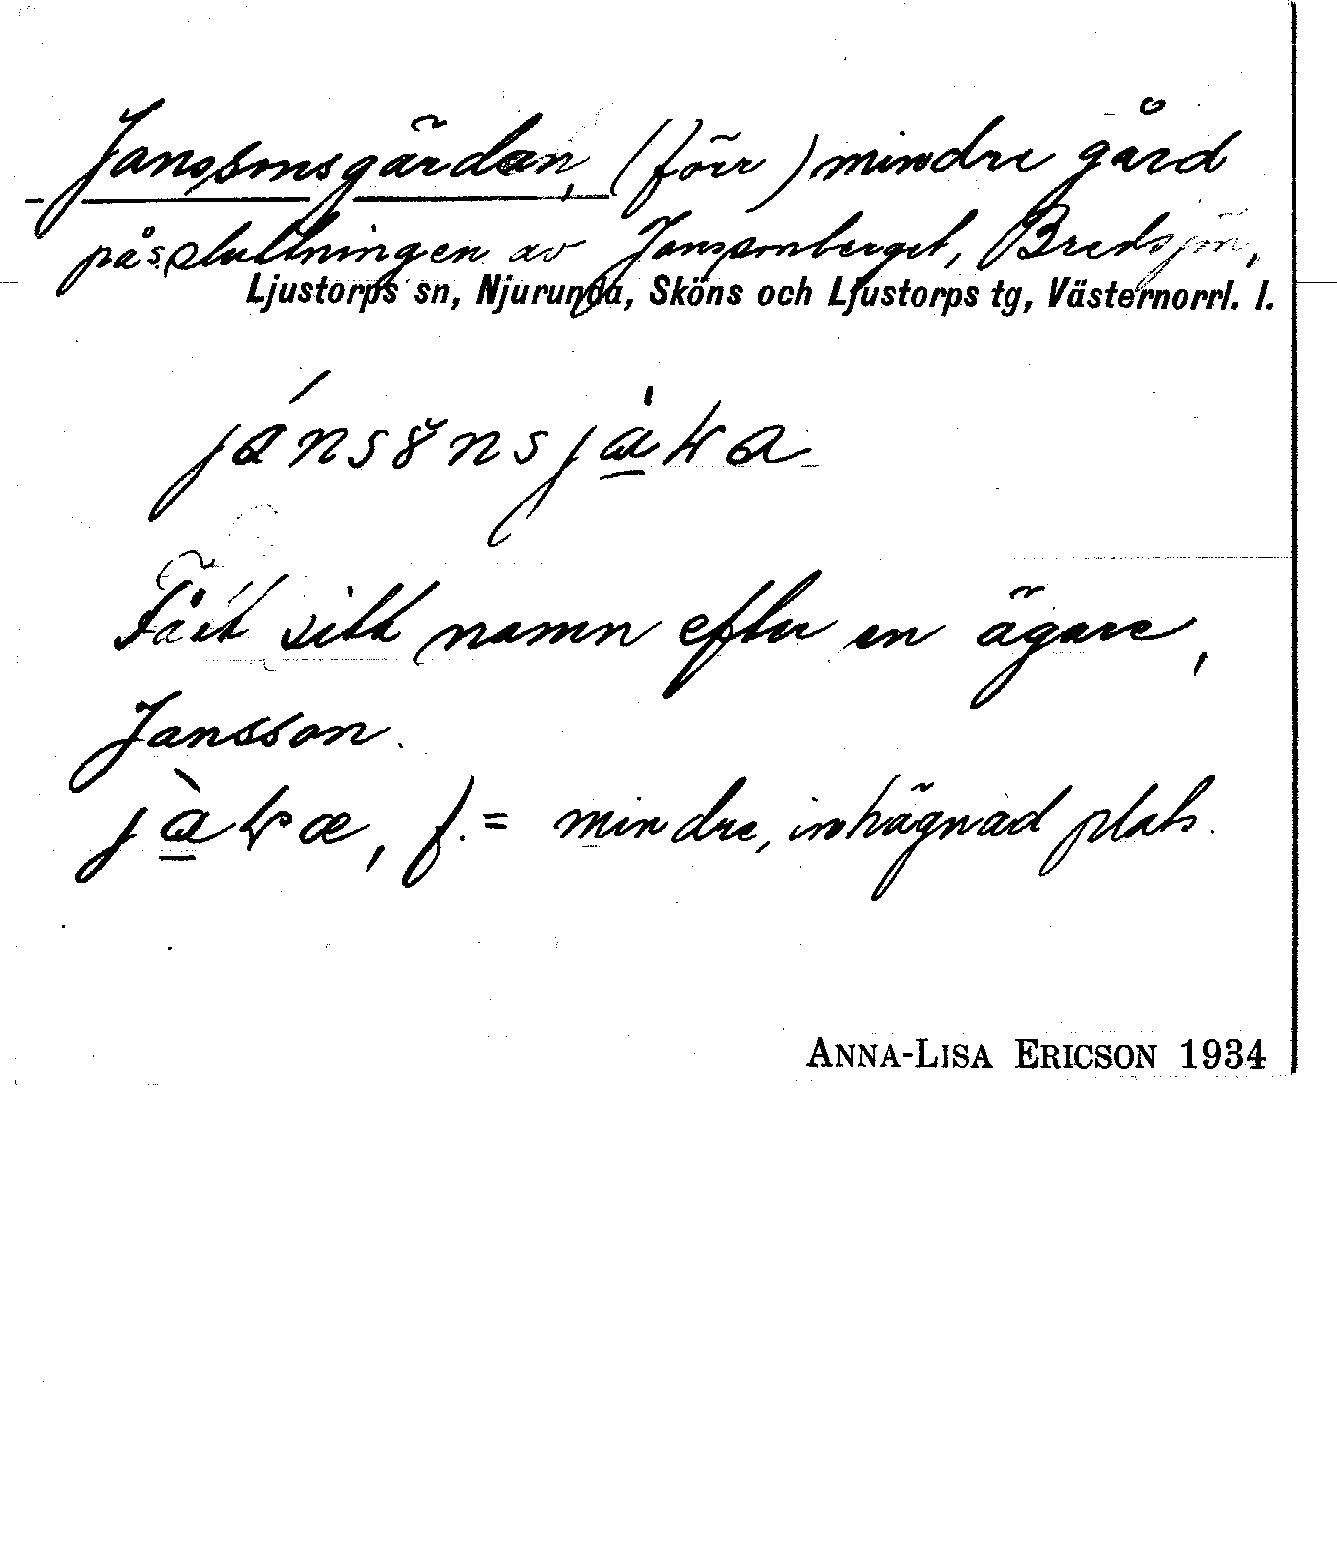 Janssonsgärdan, (förr) mindre gård
på s. sluttningen av Janssonberget, Bredsjön,
Ljustorps sn, Njurunda, Sköns och Ljustorps tg, Västernorrl. l.
Fått sitt namn efter en ägare,
Jansson.
f. = mindre, inhägnad plats.
ANNA-LISA ERICSON 1934